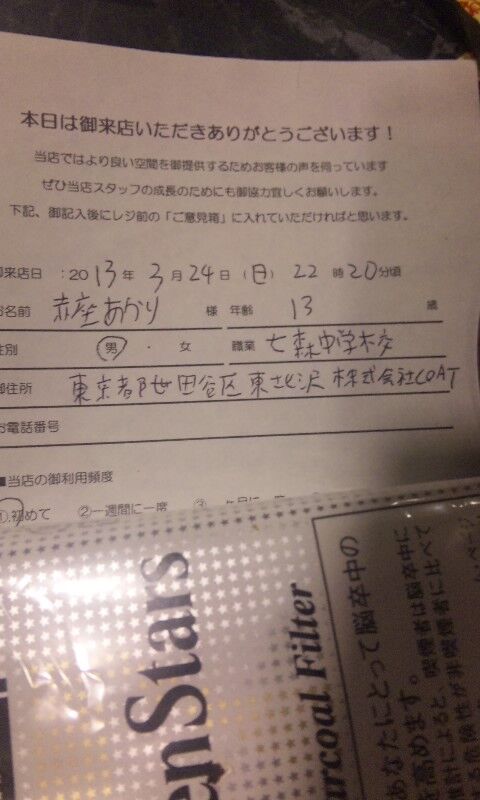 本日は御来店いただきありがとうございます！
当店ではより良い空間を御提供するためお客様の声を伺っています
ぜひ当店スタッフの成長のためにも御協力宜しくお願いします。
下記、御記入後にレジ前の「ご意見箱」に入れていただければと思います。
御来店日 ：2013年 3月24日（日）22時20分頃
お名前 赤座あかり 様 年齢 13 歳
性別 男・女 職業 七森中学校
御住所 東京都世田谷区東北沢 株式会社COAT
お電話番号
■当店の御利用頻度
①.初めて ②一週間に一度
enStars
arcoal Filter
あなたにとって脳卒中の
を高めます。
計によると、喫煙者は脳卒中に
危険性が非喫煙者に比べて